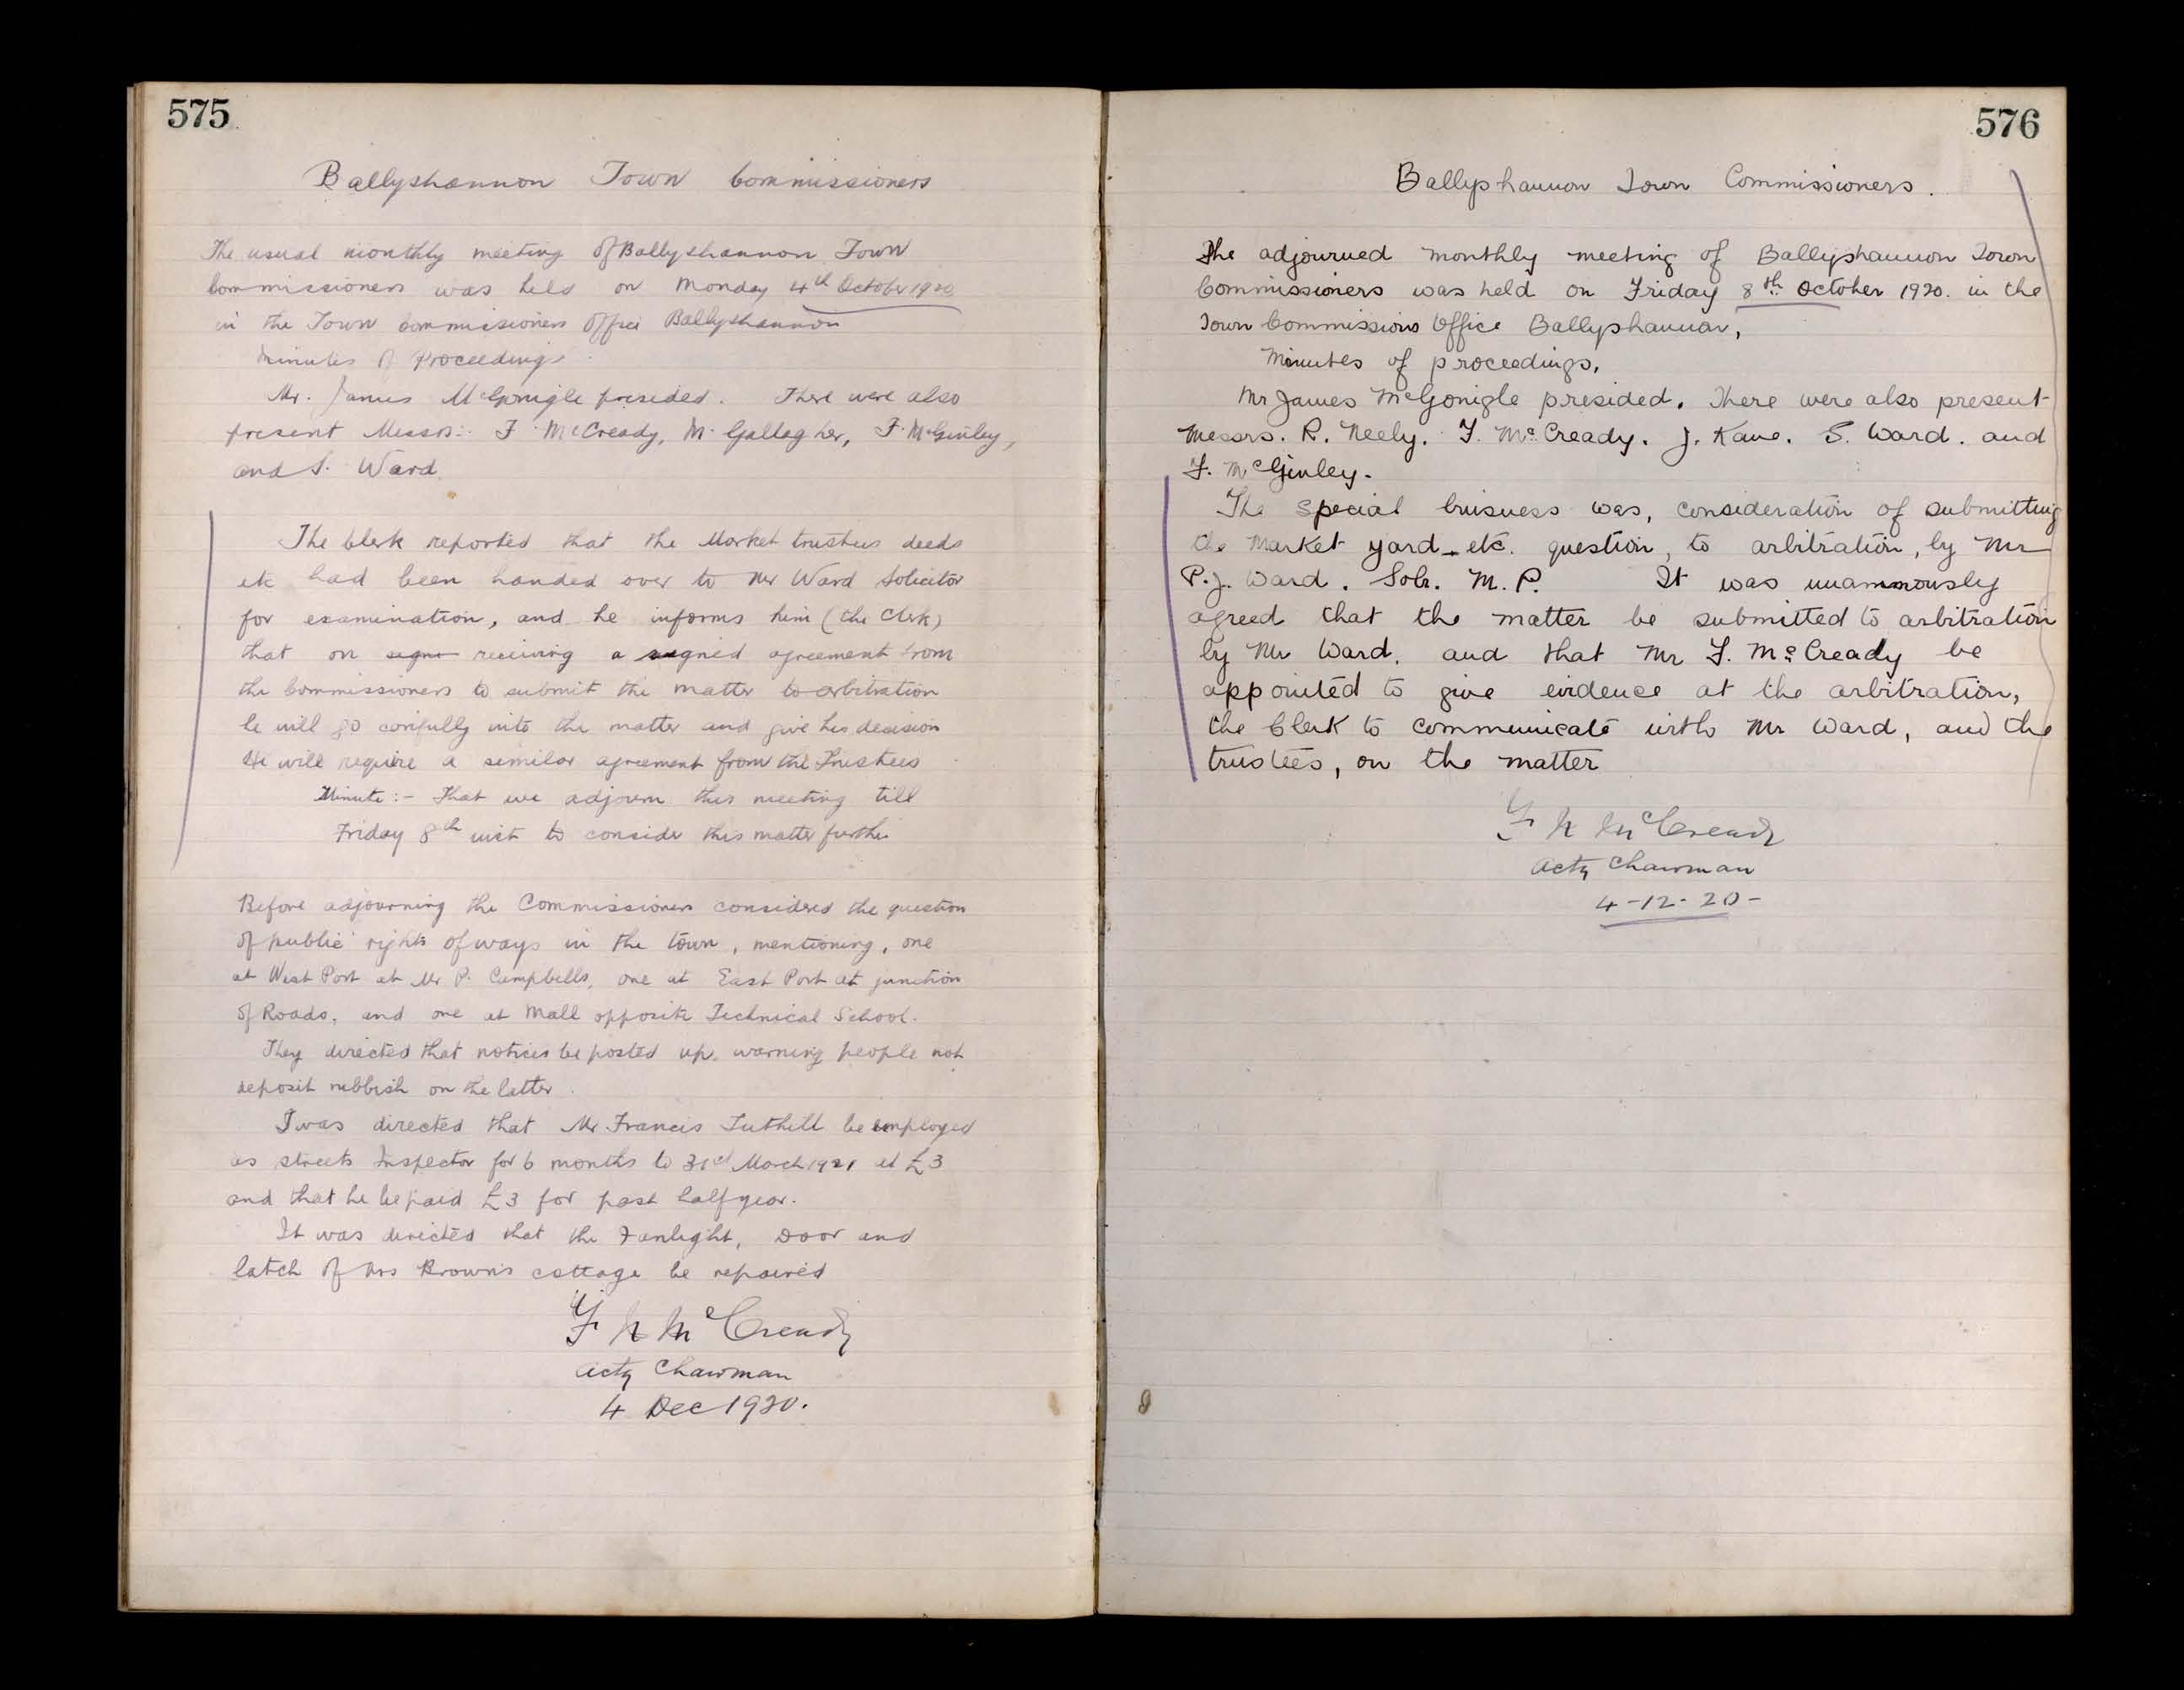 575
Ballyshannon Town Commissioners
The usual monthly meeting of Ballyshannon Town
Commissioners was held on Monday 4th October 1920
in the Town Commissioners Office Ballyshannon
Minutes of Proceedings
Mr. James McGonigle presided. There were also
present Messrs:- F McCready, M. Gallagher, F. McGinley,
and S. Ward.
The Clerk reported that the Market trustees deeds
etc had been handed over to Mr Ward Solicitor
for examination, and he informs him (the Clerk)
that on signe receiving a signed agreement from
the Commissioners to submit the matter to arbitration
he will go carefully into the matter and give his decision
He will require a similar agreement from the Trustees
Minute:- That we adjourn this meeting till
Friday 8th inst to consider this matter further
Before adjourning the Commissioners considered the question
of public rights of ways in the town, mentioning, one
at West Port at Mr P. Campbells, one at East Port at junction
of Roads, and one at Mall opposite Technical School.
They directed that notices be posted up, warning people not
deposit rubbish on the latter.
I was directed that Mr Francis Tuthill be employed
as streets Inspector for 6 months to 31st March 1921 at £3
and that he be paid £3 for past half year.
It was directed that the Fanlight, Door and
latch of Mrs Brown's cottage be repaired
F N McCready
Actg Chairman
4 Dec 1920.
576
Ballyshannon Town Commissioners.
The adjourned monthly meeting of Ballyshannon Town
Commissioners was held on Friday 8th October 1920. in the
Town Commissions Office Ballyshannon,
Minutes of proceedings.
Mr James McGonigle presided. There were also present
Messrs. R. Neely. F. McCready. J. Kane. S. Ward. and
F. McGinley.
The special buisness was, consideration of submitting
the Market yard etc. question, to arbitration, by Mr
P.J. Ward. Solr. M.P. It was unamnously
agreed that the matter be submitted to arbitration
by Mr Ward, and that Mr F. McCready be
appointed to give evidence at the arbitration,
the Clerk to communicate with Mr Ward, and the
trustees, on the matter
F N McCready
Actg Chairman
4-12-20-